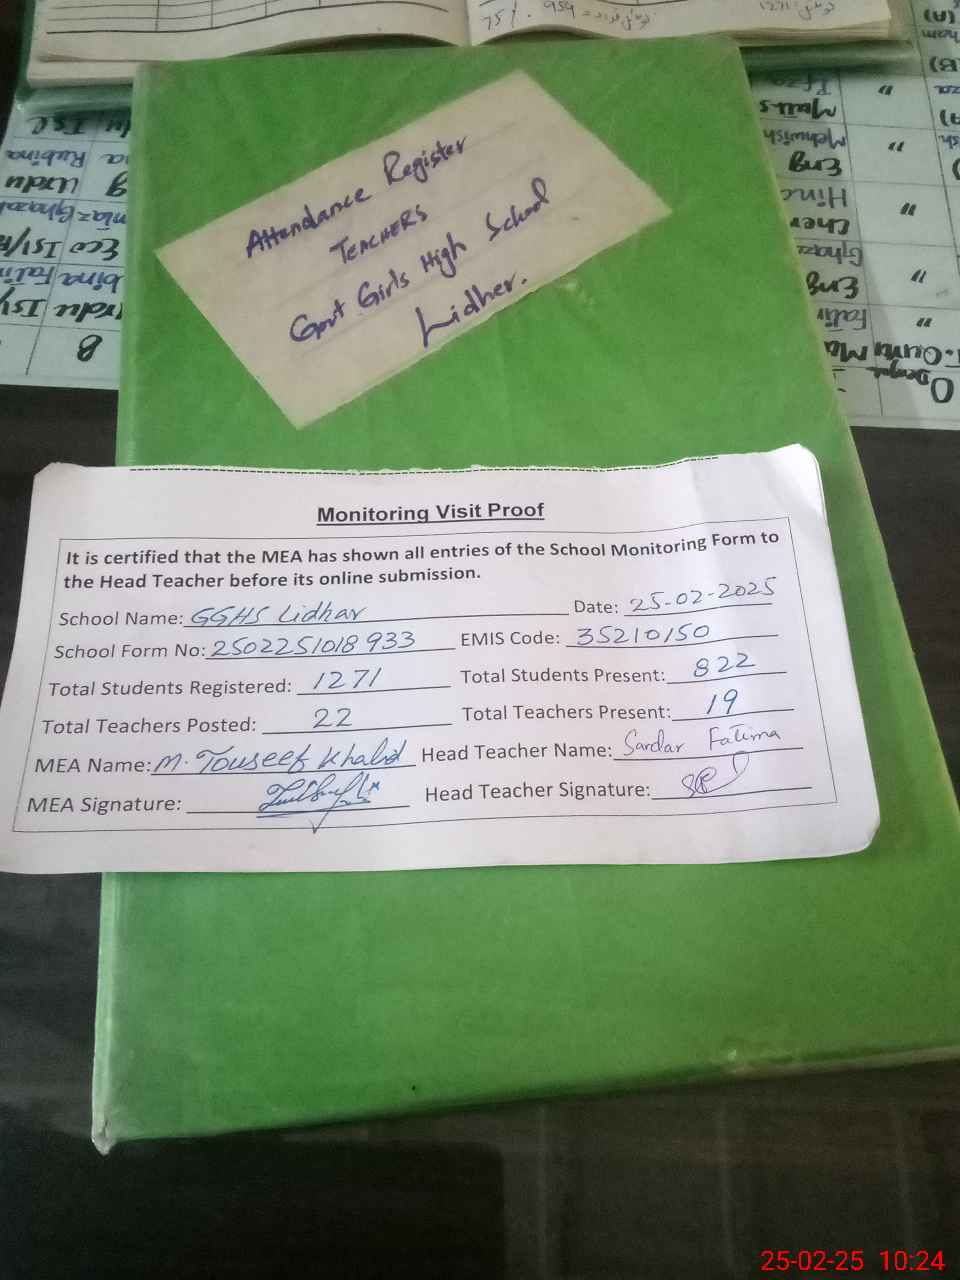 75%. 959
Attendance Register
TEACHERS
Govt Girls High School
Lidher.
Monitoring Visit Proof
It is certified that the MEA has shown all entries of the School Monitoring Form to
the Head Teacher before its online submission.
School Name: GGHS Lidhar Date: 25-02-2025
School Form No: 2502251018933 EMIS Code: 35210150
Total Students Registered: 1271 Total Students Present: 822
Total Teachers Posted: 22 Total Teachers Present: 19
MEA Name: M. Touseef Khalid Head Teacher Name: Sardar Fatima
MEA Signature: Head Teacher Signature:
Urdu Isl
Rubina
Urdu
Eco Isl
Urdu Isl
B
Maths
Mehwish
Eng
Hina
Chem
Eng
25-02-25 10:24